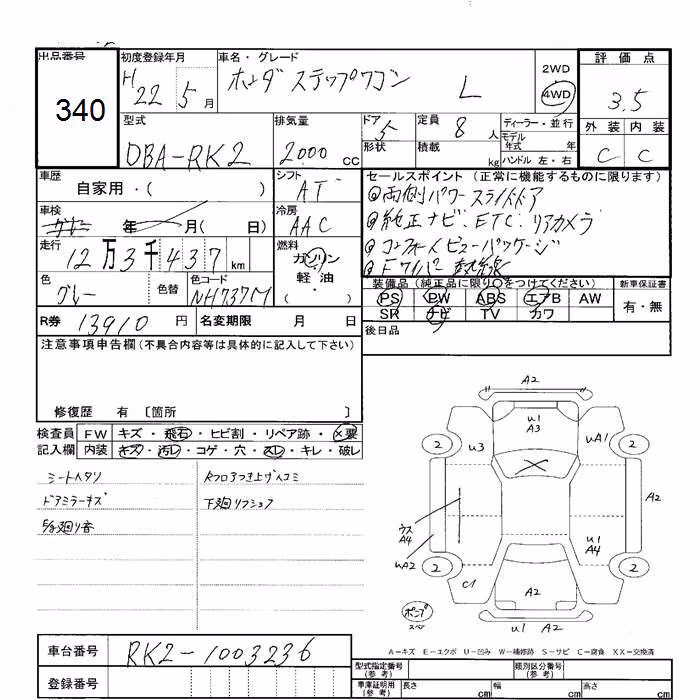 出品番号
340
初度登録年月
H 22 5 月
車名・グレード
ホンダ ステップワゴン L
2WD
4WD
評価点
3.5
外装 内装
C C
型式
DBA-RK2
排気量
2000 cc
ドア
5
形状
定員
8 人
積載
kg
ディーラー・並行
モデル
年式 年
ハンドル 左・右
車歴
自家用・( )
シフト
AT
セールスポイント (正常に機能するものに限ります)
◎両側パワースライドドア
◎純正ナビ. ETC. リアカメラ
◎コンフォートビューパッケージ
◎Fワイパー熱線
車検
年 月( 日)
冷房
AAC
走行
12万3千437 km
燃料
ガソリン
軽油
・( )
色
グレー
色替
色コード
NH737M
装備品 (純正品に限り○をつけてください)
PS PW ABS エアB AW
SR ナビ TV カワ
新車保証書
有・無
R券 13910 円
名変期限 月 日
後日品
注意事項申告欄 (不具合内容等は具体的に記入して下さい)
修復歴 有 〔箇所 〕
検査員 FW キズ・飛石・ヒビ割・リペア跡・×要
記入欄 内装 キズ・汚レ・コゲ・穴・スレ・キレ・破レ
シートヘタリ
Rフロアつき上ゲヘコミ
ドアミラーキズ
下廻リフシュア
A2
U1
A3
U3
UA1
2
2
A2
ウス
A4
UA2
U1
A4
2
2
C1
A2
U1 A2
ポンプ
スペア
A-キズ E-エクボ U-凹み W-補修跡 S-サビ C-腐食 XX-交換済
車台番号 RK2-1003236
登録番号
型式指定番号
(参考)
類別区分番号
(参考)
車庫証明用
(参考)
長さ cm
幅 cm
高さ cm